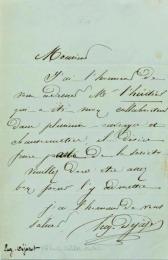 Monsieur
J'ai l'honneur de
vous adresser Mr Lhuillier
qui a été mon collaborateur
dans plusieurs ouvrages et
et désire
faire partie de la société
veuillez donc être assez
bon pour l'y admettre
j'ai l'honneur de vous
saluer
Eug. Déjazet
Eug. Déjazet